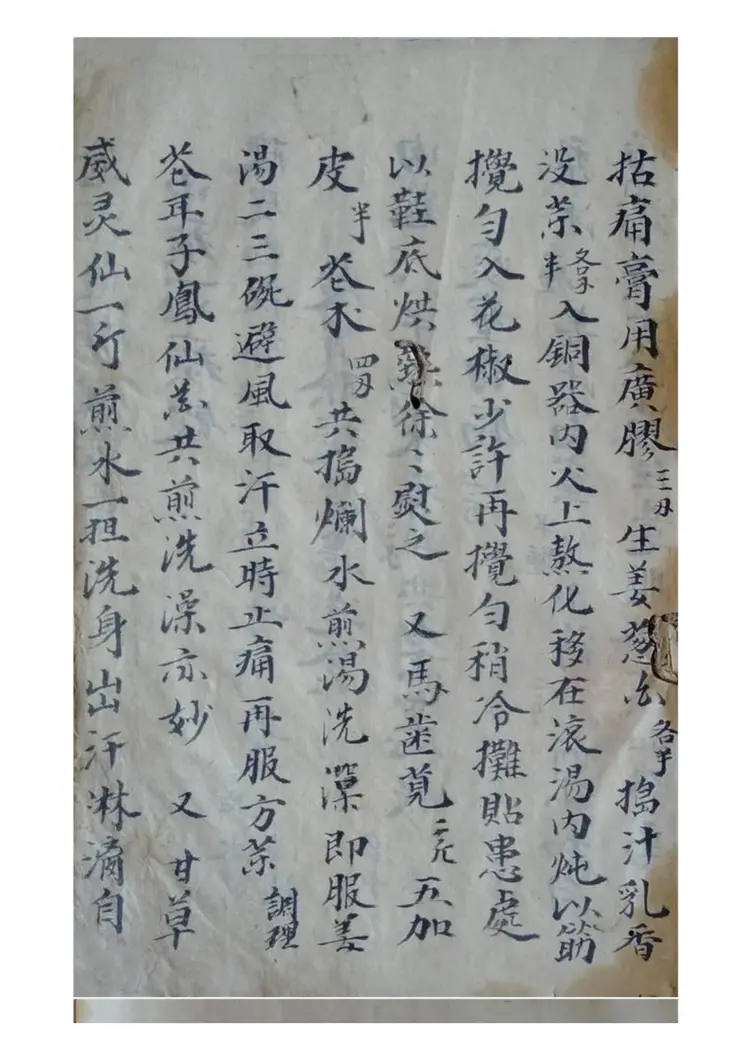 拈痛膏用廣膠三刄生姜葱白各半搗汁乳香
没茶各刄半入銅器内火上熬化移在滚湯内炖以筯
攪匀入花椒少許再攪匀稍冷攤貼患處
以鞋底烘徐〻熨之又馬歯莧五加
皮半蒼术四刄共搗爛水煎湯洗澡即服姜
湯二三碗避風取汗立時止痛再服方茶調理
苍耳子鳳仙共煎洗澡亦妙又甘草
威灵仙一斤煎水一担洗身出汗淋漓自